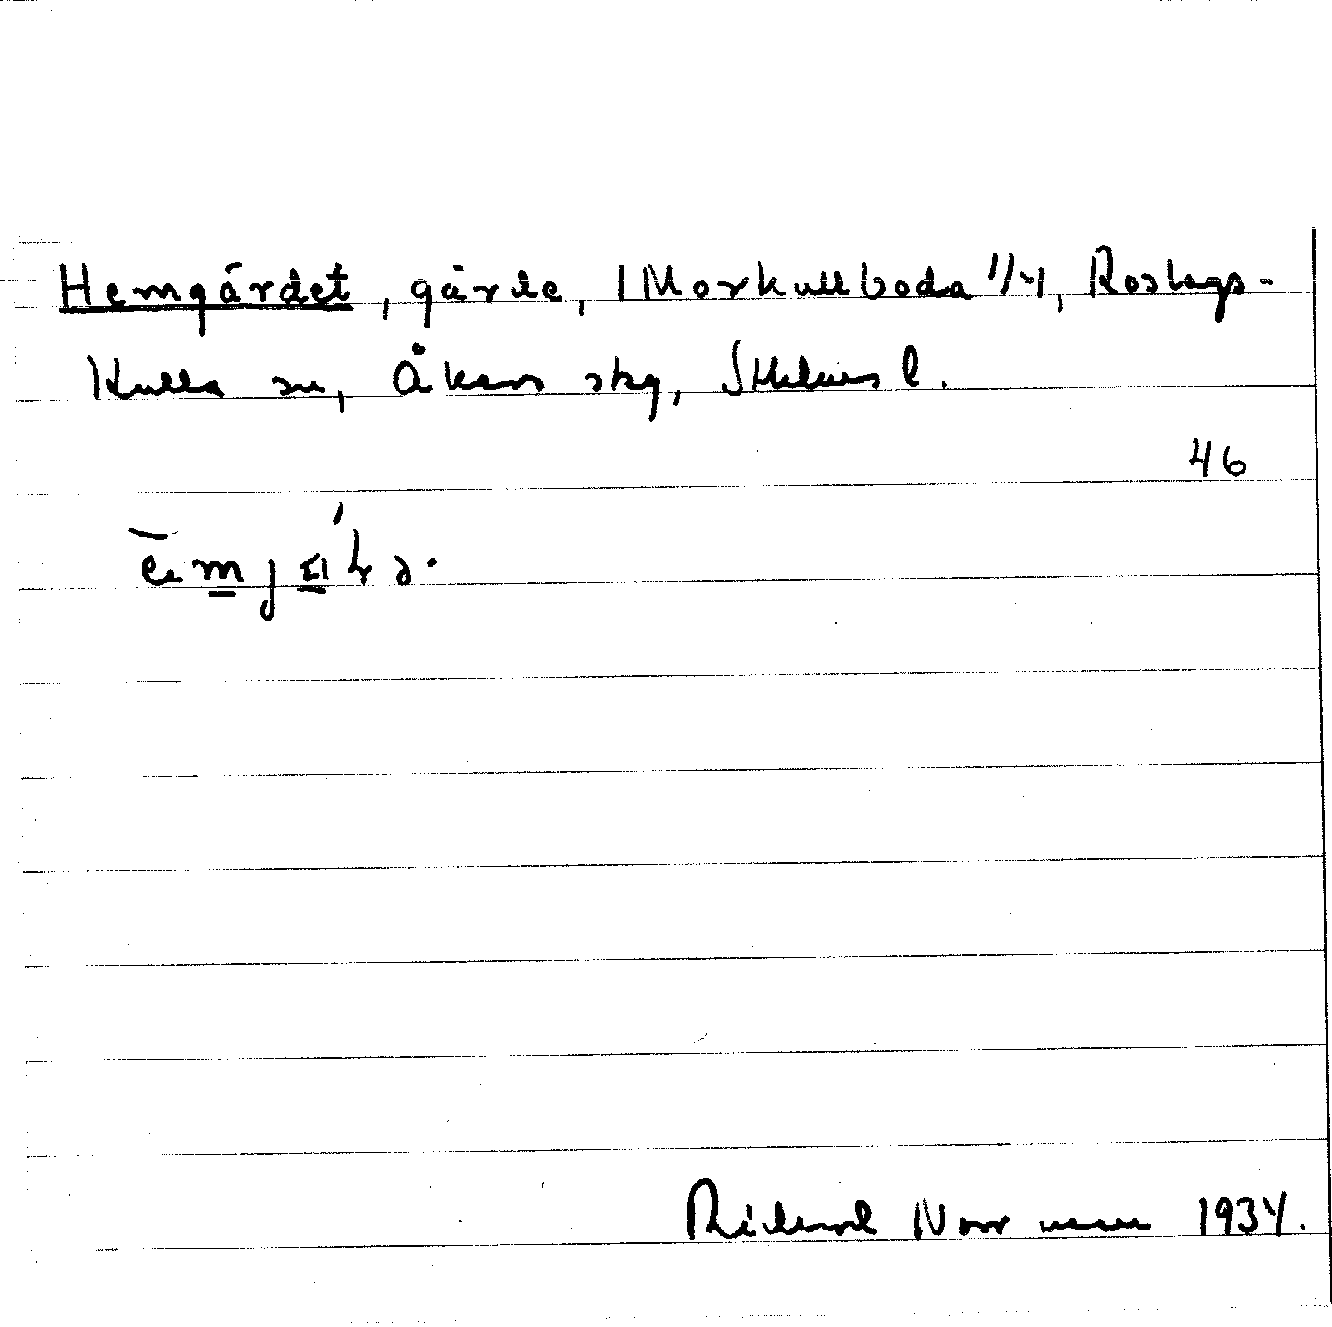 Hemgärdet, gärde, Morkullboda 1/1, Roslags-
Kulla sn, Åkers skg, Sthlms l.
46
Rickard Norrman 1934.